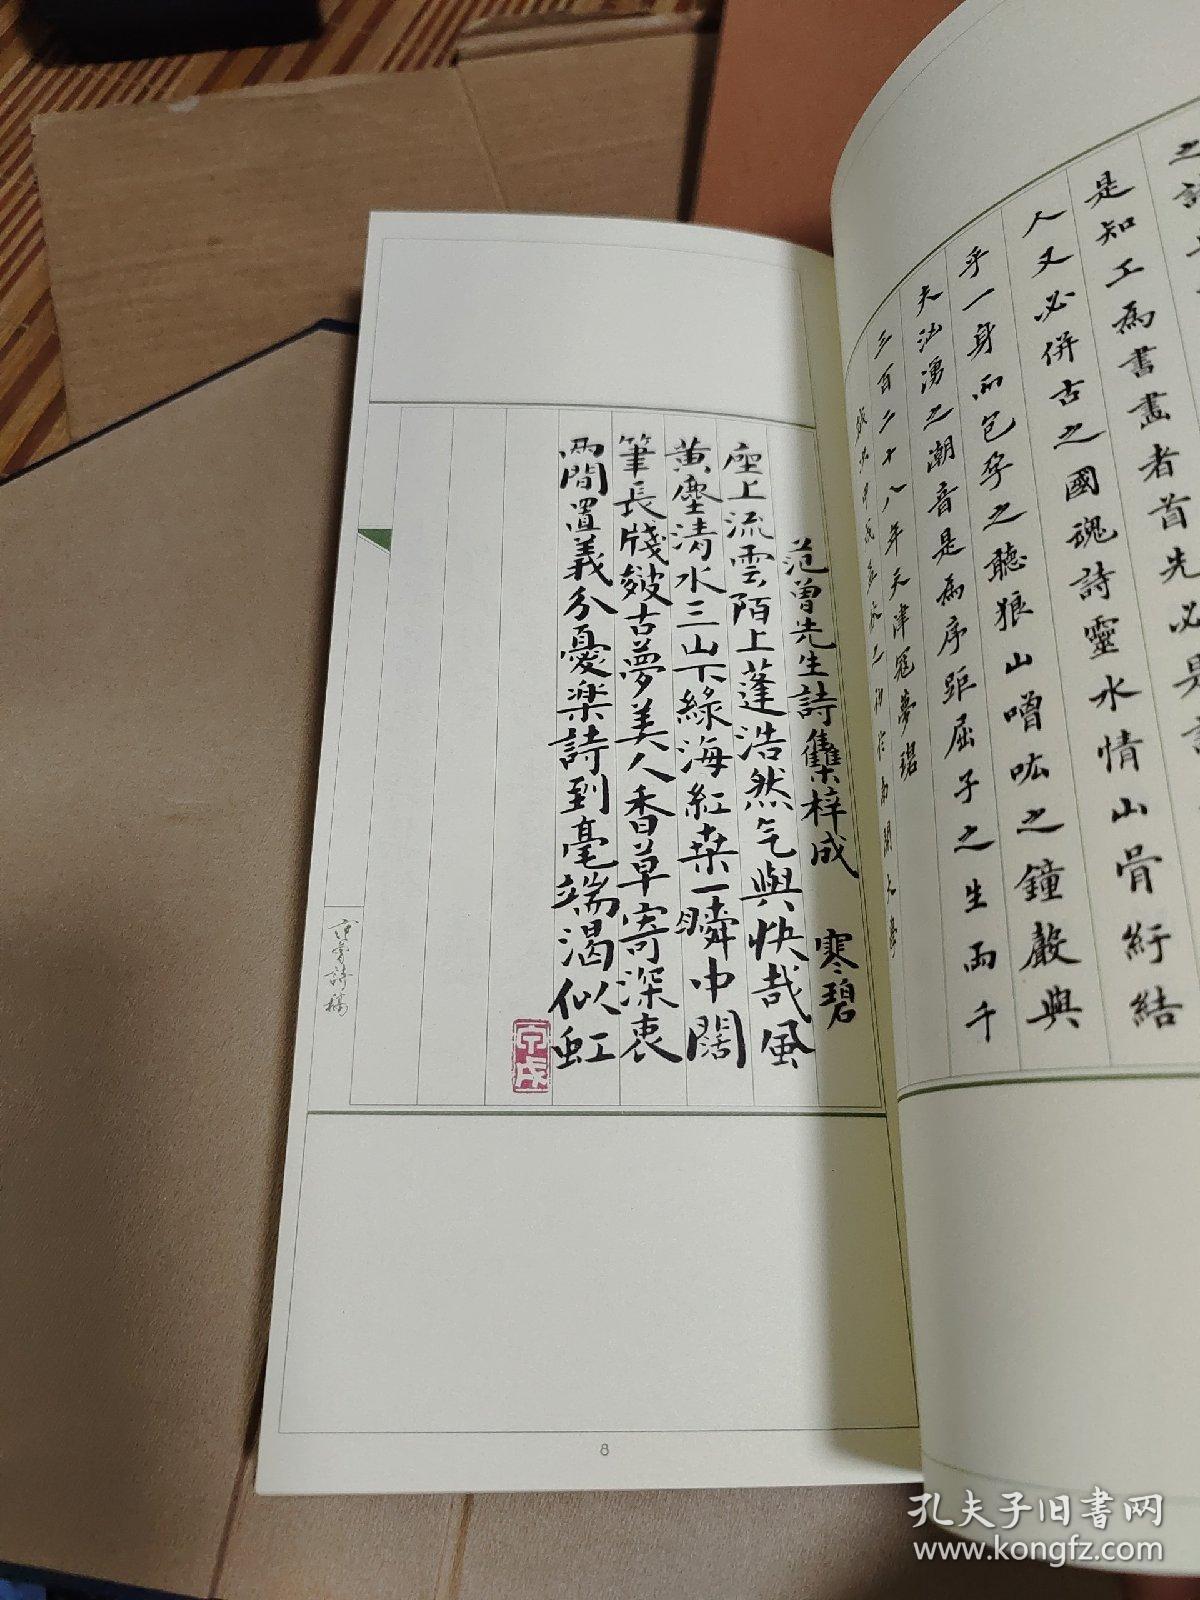 是知工為書畫者首先必是詩
人又必併古之國魂詩靈水情山骨紆結
乎一身而包孕之聽狼山噌吰之鐘聲與
夫汹湧之潮音是為序距屈子之生兩千
三百二十八年天津寇夢碧
范曾先生詩集梓成 寒碧
座上流雲陌上蓬浩然气與快哉風
黄塵清水三山下綠海紅桑一瞬中闊
筆長牋皴古夢美人香草寄深衷
兩間置義分憂樂詩到毫端渴似虹
范曾詩稿
8
孔夫子旧书网
www.kongfz.com